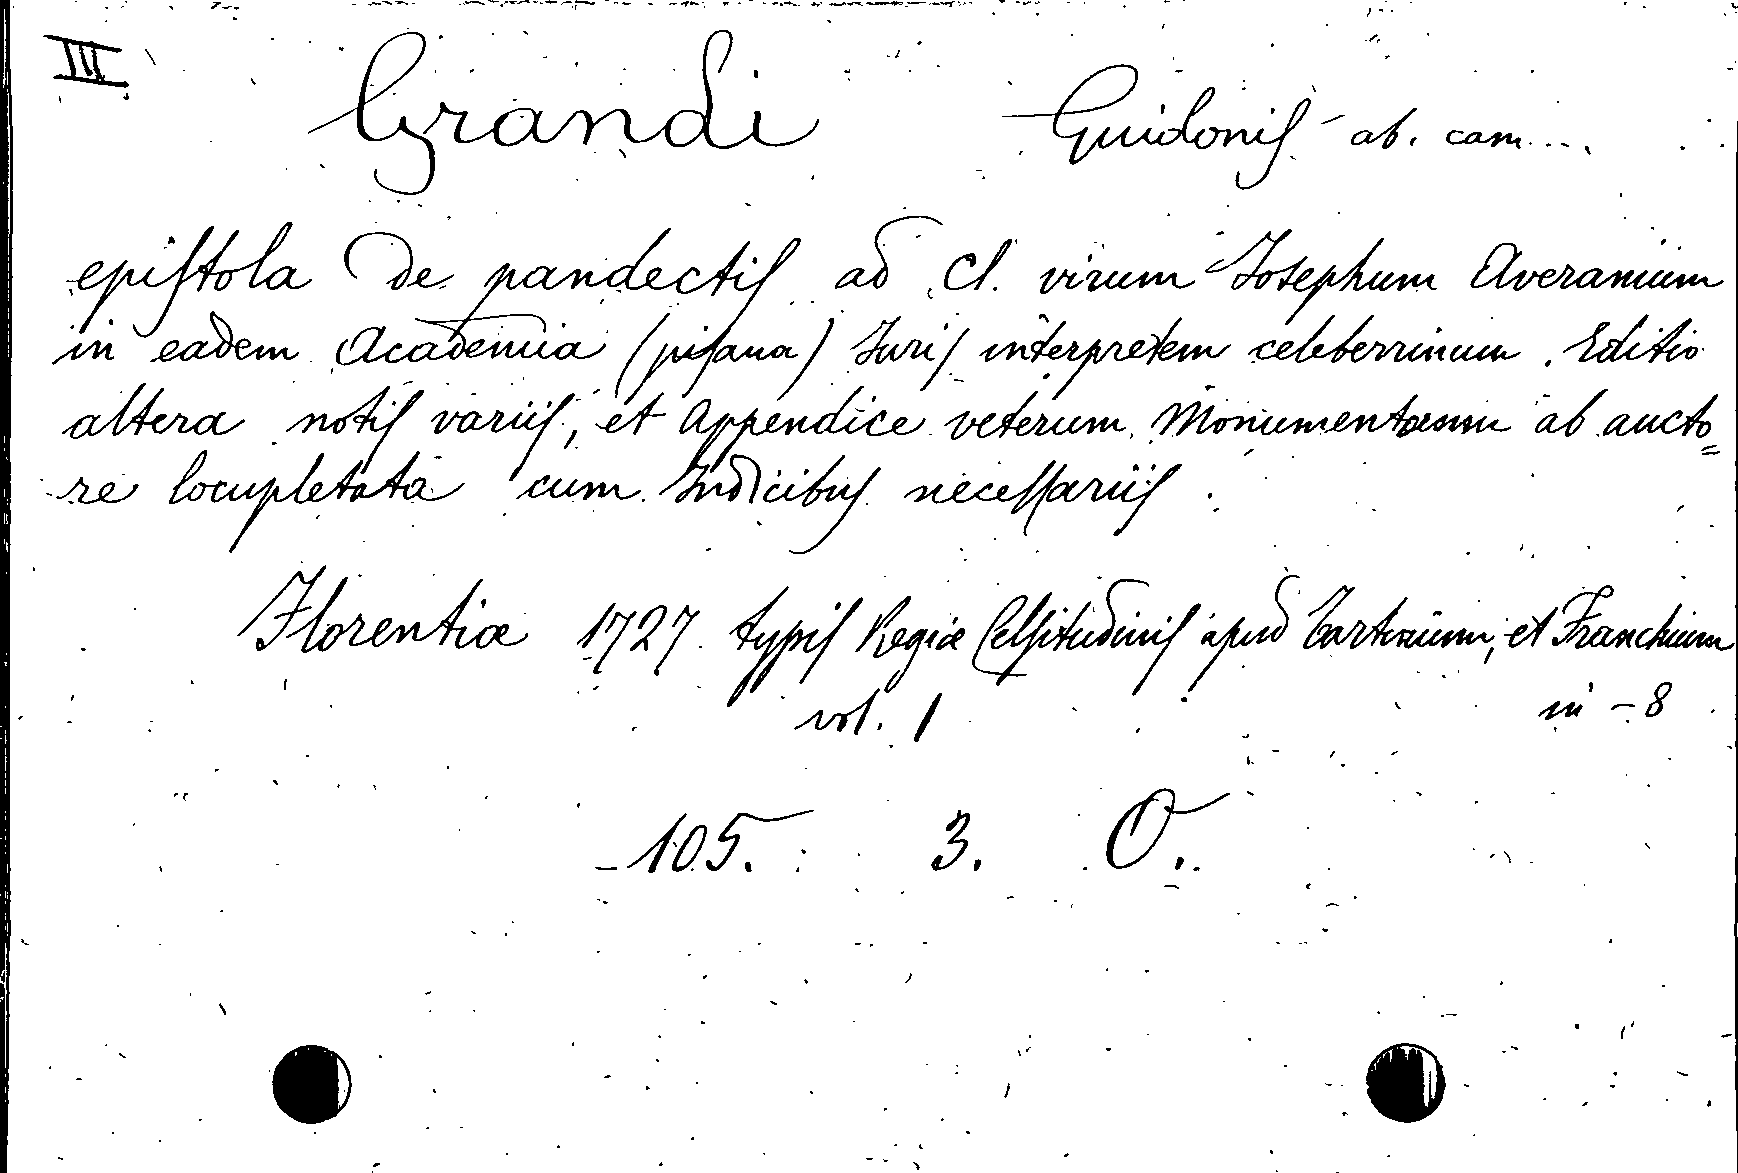 III
Grandi Guidonis ab. cam....
epistola de pandectis ad Cl. virum Josephum Averanium
in eadem Academia (pisana) Juris interpretem celeberrimum. Editio
altera notis variis, et Appendice veterum Monumentorum ab aucto=
re locupletata cum Indicibus necessariis.
Florentiæ 1727 typis Regiæ Celsitudinis apud Tartinium, et Franchium
vol. 1 in - 8
105. 3. O.